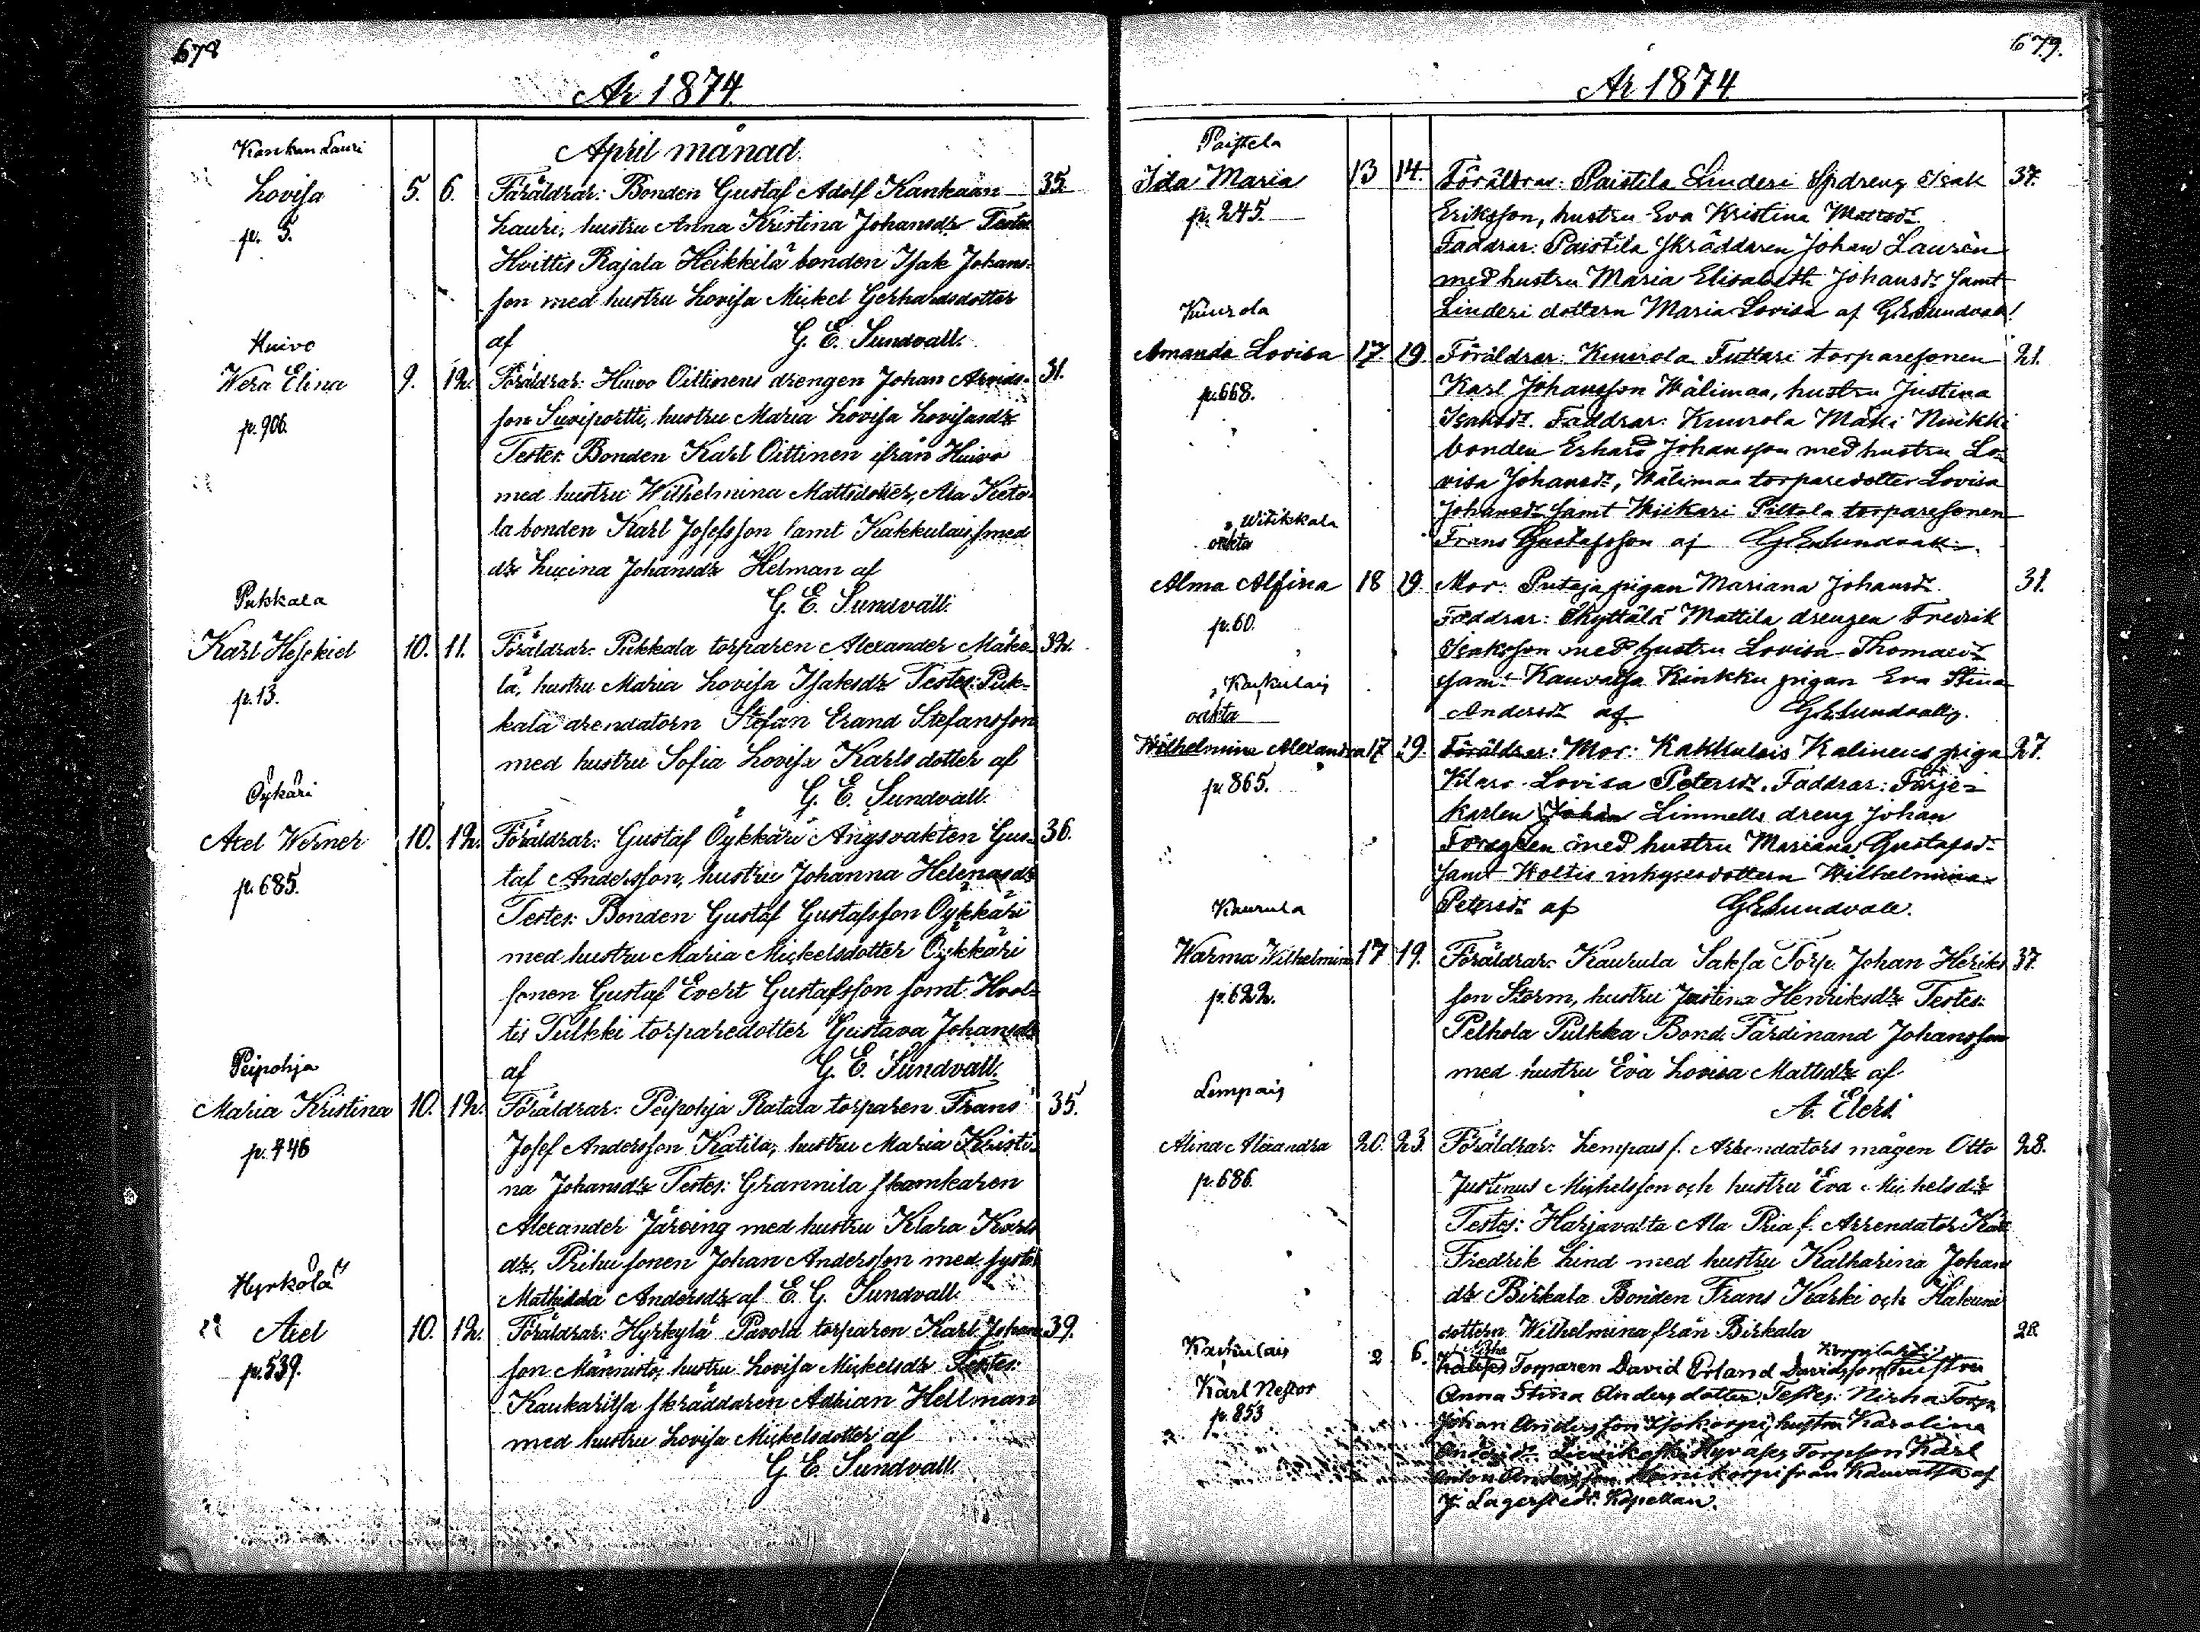 678
År 1874
April månad.
Kankan Lauri
Lovisa 5. 6. Föräldrar: Bonden Gustaf Adolf Kankaan 35.
p. 5. Lauri, hustru Anna Kristina Johansdr Testes
Hvittis Rajala Heikkilä bonden Isak Johans-
son med hustru Lovisa Mickel Gerhardsdotter
af G. E. Sundvall.
Huivo
Wera Elina 9. 12. Föräldrar: Huivo Oittinens drengen Johan Arvids- 31.
p. 906. son Suviportti, hustru Maria Lovisa Lovisasdr
Testes: Bonden Karl Oittinen ifrån Huivo
med hustru Wilhelmina Mattsdotter, Ala Keto-
la bonden Karl Josefsson samt Kakkulais smed
dr Lucina Johansdr Helman af
G. E. Sundvall.
Pukkala
Karl Heskiel 10. 11. Föräldrar: Pukkala torparen Alexander Mäke- 32.
p. 13. lä, hustru Maria Lovisa Isaksdr Testes: Puk-
kala arendatorn Stefan Erand Stefansson
med hustru Sofia Lovisa Karlsdotter af
G. E. Sundvall.
Öykäri
Axel Werner 10. 12. Föräldrar: Gustaf Öykkäri Ängsvakten Gus- 36.
p. 685. taf Andersson, hustru Johanna Helenasdr
Testes: Bonden Gustaf Gustafsson Öykkäri
med hustru Maria Mickelsdotter Öykkäri
sonen Gustaf Evert Gustafsson samt Hvol-
tis Pulkki torparedotter Gustava Johansdr
af G. E. Sundvall.
Peipohja
Maria Kristina 10. 12. Föräldrar: Peipohja Ratala torparen Frans 35.
p. 446 Josef Andersson Katila, hustru Maria Kristi-
na Johansdr Testes: Grannila skomkaren
Alexander Järving med hustru Klara Karls
dr. Prihu sonen Johan Andersson med syster
Mathilda Andersdr af E. G. Sundvall.
Hyrkölä
Axel 10. 12. Föräldrar: Hyrkylä Pavola torparen Karl Johan 39.
p. 539. son Männistö, hustru Lovisa Mickelsdr Testes:
Kaukaritsa skräddaren Adrian Hellman
med hustru Lovisa Mickelsdotter af
G. E. Sundvall.
679.
År 1874
Paistila
Ida Maria 13 14. Föräldrar: Paistila Linderi Spdreng Isak 37.
p. 245. Eriksson, hustru Eva Kristina Mattsdr.
Faddrar: Paistila skräddaren Johan Laurén
med hustru Maria Elisabeth Johansdr samt
Linderi dottern Maria Lovisa af G E Sundvall.
Kuurola
Amanda Lovisa 17 19. Föräldrar: Kuurola Tuttari torparesonen 21.
p. 668. Karl Johansson Wälimaa, hustru Justina
Isaksdr. Faddrar: Kuurola Mäki Nuikki
bonden Erhard Johansson med hustru Lo-
visa Johansdr, Wälimaa torparedotter Lovisa
Johansdr samt Wiikari Piltola torparesonen
Frans Gustafsson af G E Sundvall.
Witikkala
oäkta
Alma Alfina 18 19. Mor: Puteja pigan Mariana Johansdr. 31.
p. 60. Faddrar: Skyttälä Mattila drengen Fredrik
Isaksson med hustru Lovisa Thomasdr
samt Kauvatsa Kinkku pigan Eva Stina
Andersdr af G E Sundvall.
Kakulais
oäkta
Wilhelmina Alexandra 17 19. Föräldrar: Mor: Kakkulais Kalinens piga 27.
p. 865. Klara Lovisa Petersdr. Faddrar: Färje-
karlen Johan Limnells dreng Johan
med hustru Mariana Gustafsdr
samt Woltis inhysesdottern Wilhelmina
Petersdr af G E Sundvall.
Kaurula
Warma Wilhelmina 17 19. Föräldrar: Kaurula Saksa Torp. Johan Heriks 37.
p. 622. son Storm, hustru Justina Henriksdr Testes:
Pelhola Pulkka Bond. Färdinand Johansson
med hustru Eva Lovisa Mattsdr af
A. Elers.
Lempais
Alina Alexandra 20. 23. Föräldrar: Lempais f. Arrendators mågen Otto 28.
p. 686. Justinus Michelsson och hustru Eva Michelsdr
Testes: Harjavalta Ala Pria f. Arrendator Karl
Fredrik Lind med hustru Katharina Johans
dr Birkala Bonden Frans Karki och Hakuni
dottern Wilhelmina från Birkala
Kakulais 2 6. Torparen David Erland Davidsson hustru 28.
Karl Nestor Anna Stina Anders dotter. Testes: Nirha Torp.
p. 853 Johan Andersson Isokorpi, hustru Karolina
Andersdr. Hyväpes Torpson Karl
Anton Andersson från Kauvatsa af
J. Lagerstedt. Kapellan.